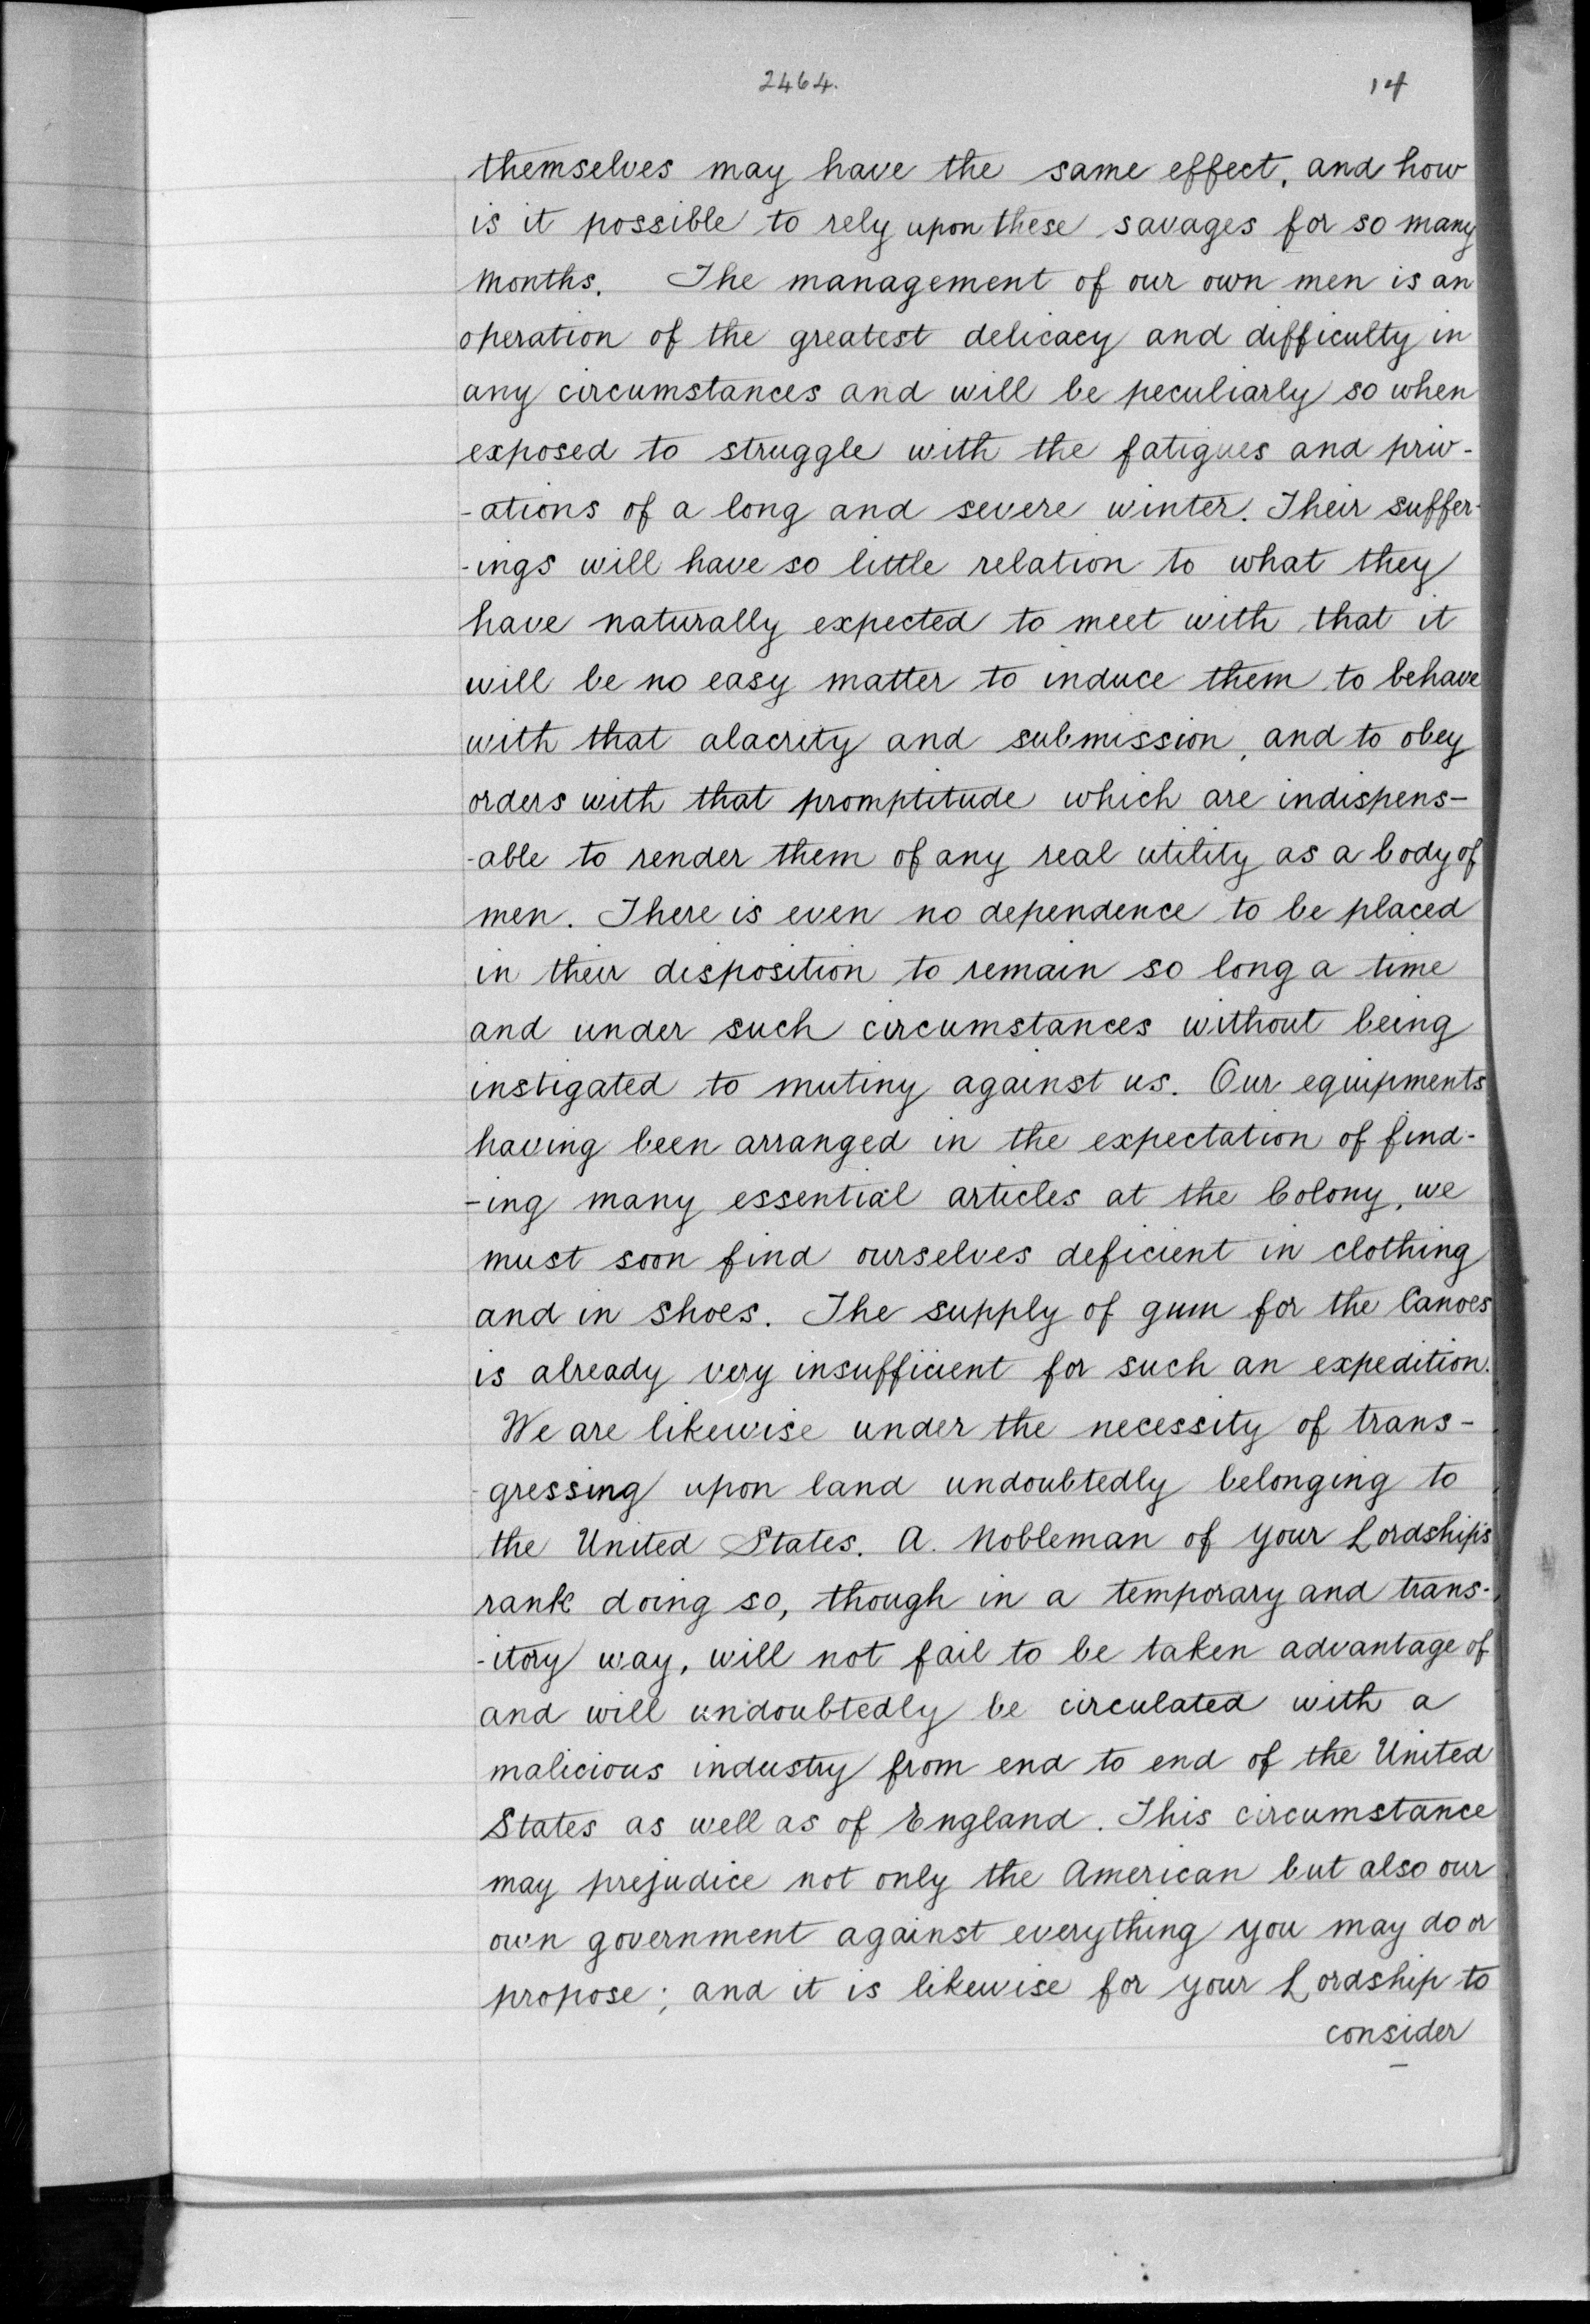 2464.
14
themselves may have the same effect, and how
is it possible to rely upon these savages for so many
months. The management of our own men is an
operation of the greatest delicacy and difficulty in
any circumstances and will be peculiarly so when
exposed to struggle with the fatigues and priv-
-ations of a long and severe winter. Their suffer-
-ings will have so little relation to what they
have naturally expected to meet with that it
will be no easy matter to induce them to behave
with that alacrity and submission, and to obey
orders with that promptitude which are indispens-
-able to render them of any real utility as a body of
men. There is even no dependence to be placed
in their disposition to remain so long a time
and under such circumstances without being
instigated to mutiny against us. Our equipments
having been arranged in the expectation of find-
-ing many essential articles at the Colony, we
must soon find ourselves deficient in clothing
and in shoes. The supply of gum for the Canoes
is already very insufficient for such an expedition.
We are likewise under the necessity of trans-
-gressing upon land undoubtedly belonging to
the United States. A. Nobleman of your Lordship's
rank doing so, though in a temporary and trans-
-itory way, will not fail to be taken advantage of
and will undoubtedly be circulated with a
malicious industry from end to end of the United
States as well as of England. This circumstance
may prejudice not only the American but also our
own government against everything you may do or
propose; and it is likewise for your Lordship to
consider